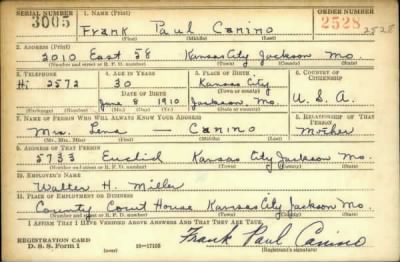 SERIAL NUMBER 1. NAME (Print) ORDER NUMBER
3005 Frank Paul Canino 2528 2528
(First) (Middle) (Last)
2. ADDRESS (Print)
3010 East 58 Kansas City Jackson Mo.
(Number and street or R. F. D. number) (Town) (County) (State)
3. TELEPHONE 4. AGE IN YEARS 5. PLACE OF BIRTH 6. COUNTRY OF CITIZENSHIP
Hi 2572 30 Kansas City
DATE OF BIRTH (Town or county)
June 8 1910 Jackson, Mo. U. S. A.
(Exchange) (Number) (Mo.) (Day) (Yr.) (State or country)
7. NAME OF PERSON WHO WILL ALWAYS KNOW YOUR ADDRESS 8. RELATIONSHIP OF THAT PERSON
Mrs. Lena — Canino Mother
(Mr., Mrs., Miss) (First) (Middle) (Last)
9. ADDRESS OF THAT PERSON
5733 Euclid Kansas City Jackson Mo.
(Number and street or R. F. D. number) (Town) (County) (State)
10. EMPLOYER'S NAME
Walter H. Miller
11. PLACE OF EMPLOYMENT OR BUSINESS
County Court House Kansas City Jackson Mo.
(Number and street or R. F. D. number) (Town) (County) (State)
I AFFIRM THAT I HAVE VERIFIED ABOVE ANSWERS AND THAT THEY ARE TRUE.
REGISTRATION CARD
D. S. S. Form 1 16—17105 Frank Paul Canino
(Registrant's signature)